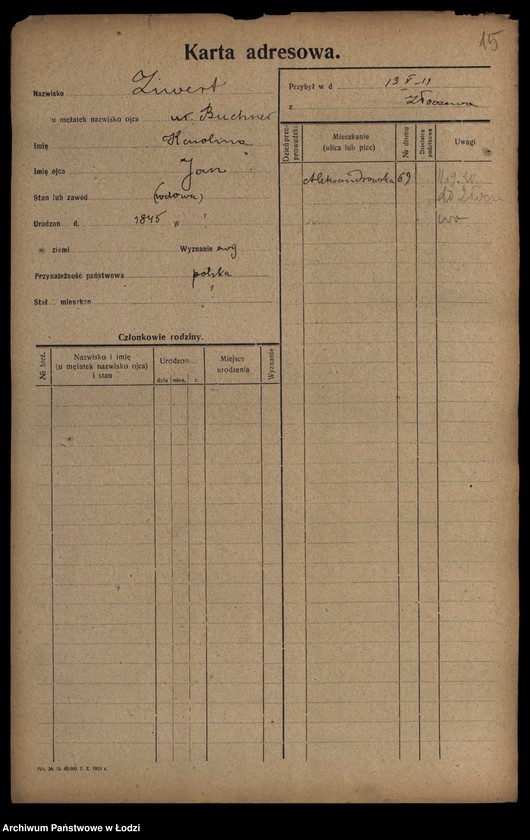 15
Karta adresowa.
Nazwisko Ziwert
u mężatek nazwisko ojca ur. Buchner
Imię Karolina
Imię ojca Jan
Stan lub zawód (wdowa)
Urodzon d. 1845 w "
ziemi Wyznanie ewg
Przynależność państwowa polska
Stał. mieszkan "
Członkowie rodziny.
№ bież.
Nazwisko i imię
(u mężatek nazwisko ojca)
i stan
Urodzon
dnia mies. r.
Miejsce
urodzenia
Wyznanie
Przybył w d 13 V-11
z Złoczewa
Dzień przeprowadzki
Mieszkanie
(ulica lub plac)
№ domu
Uwagi
Aleksandrowska 69
11.9.30
do Złocz
ewa
Archiwum Państwowe w Łodzi